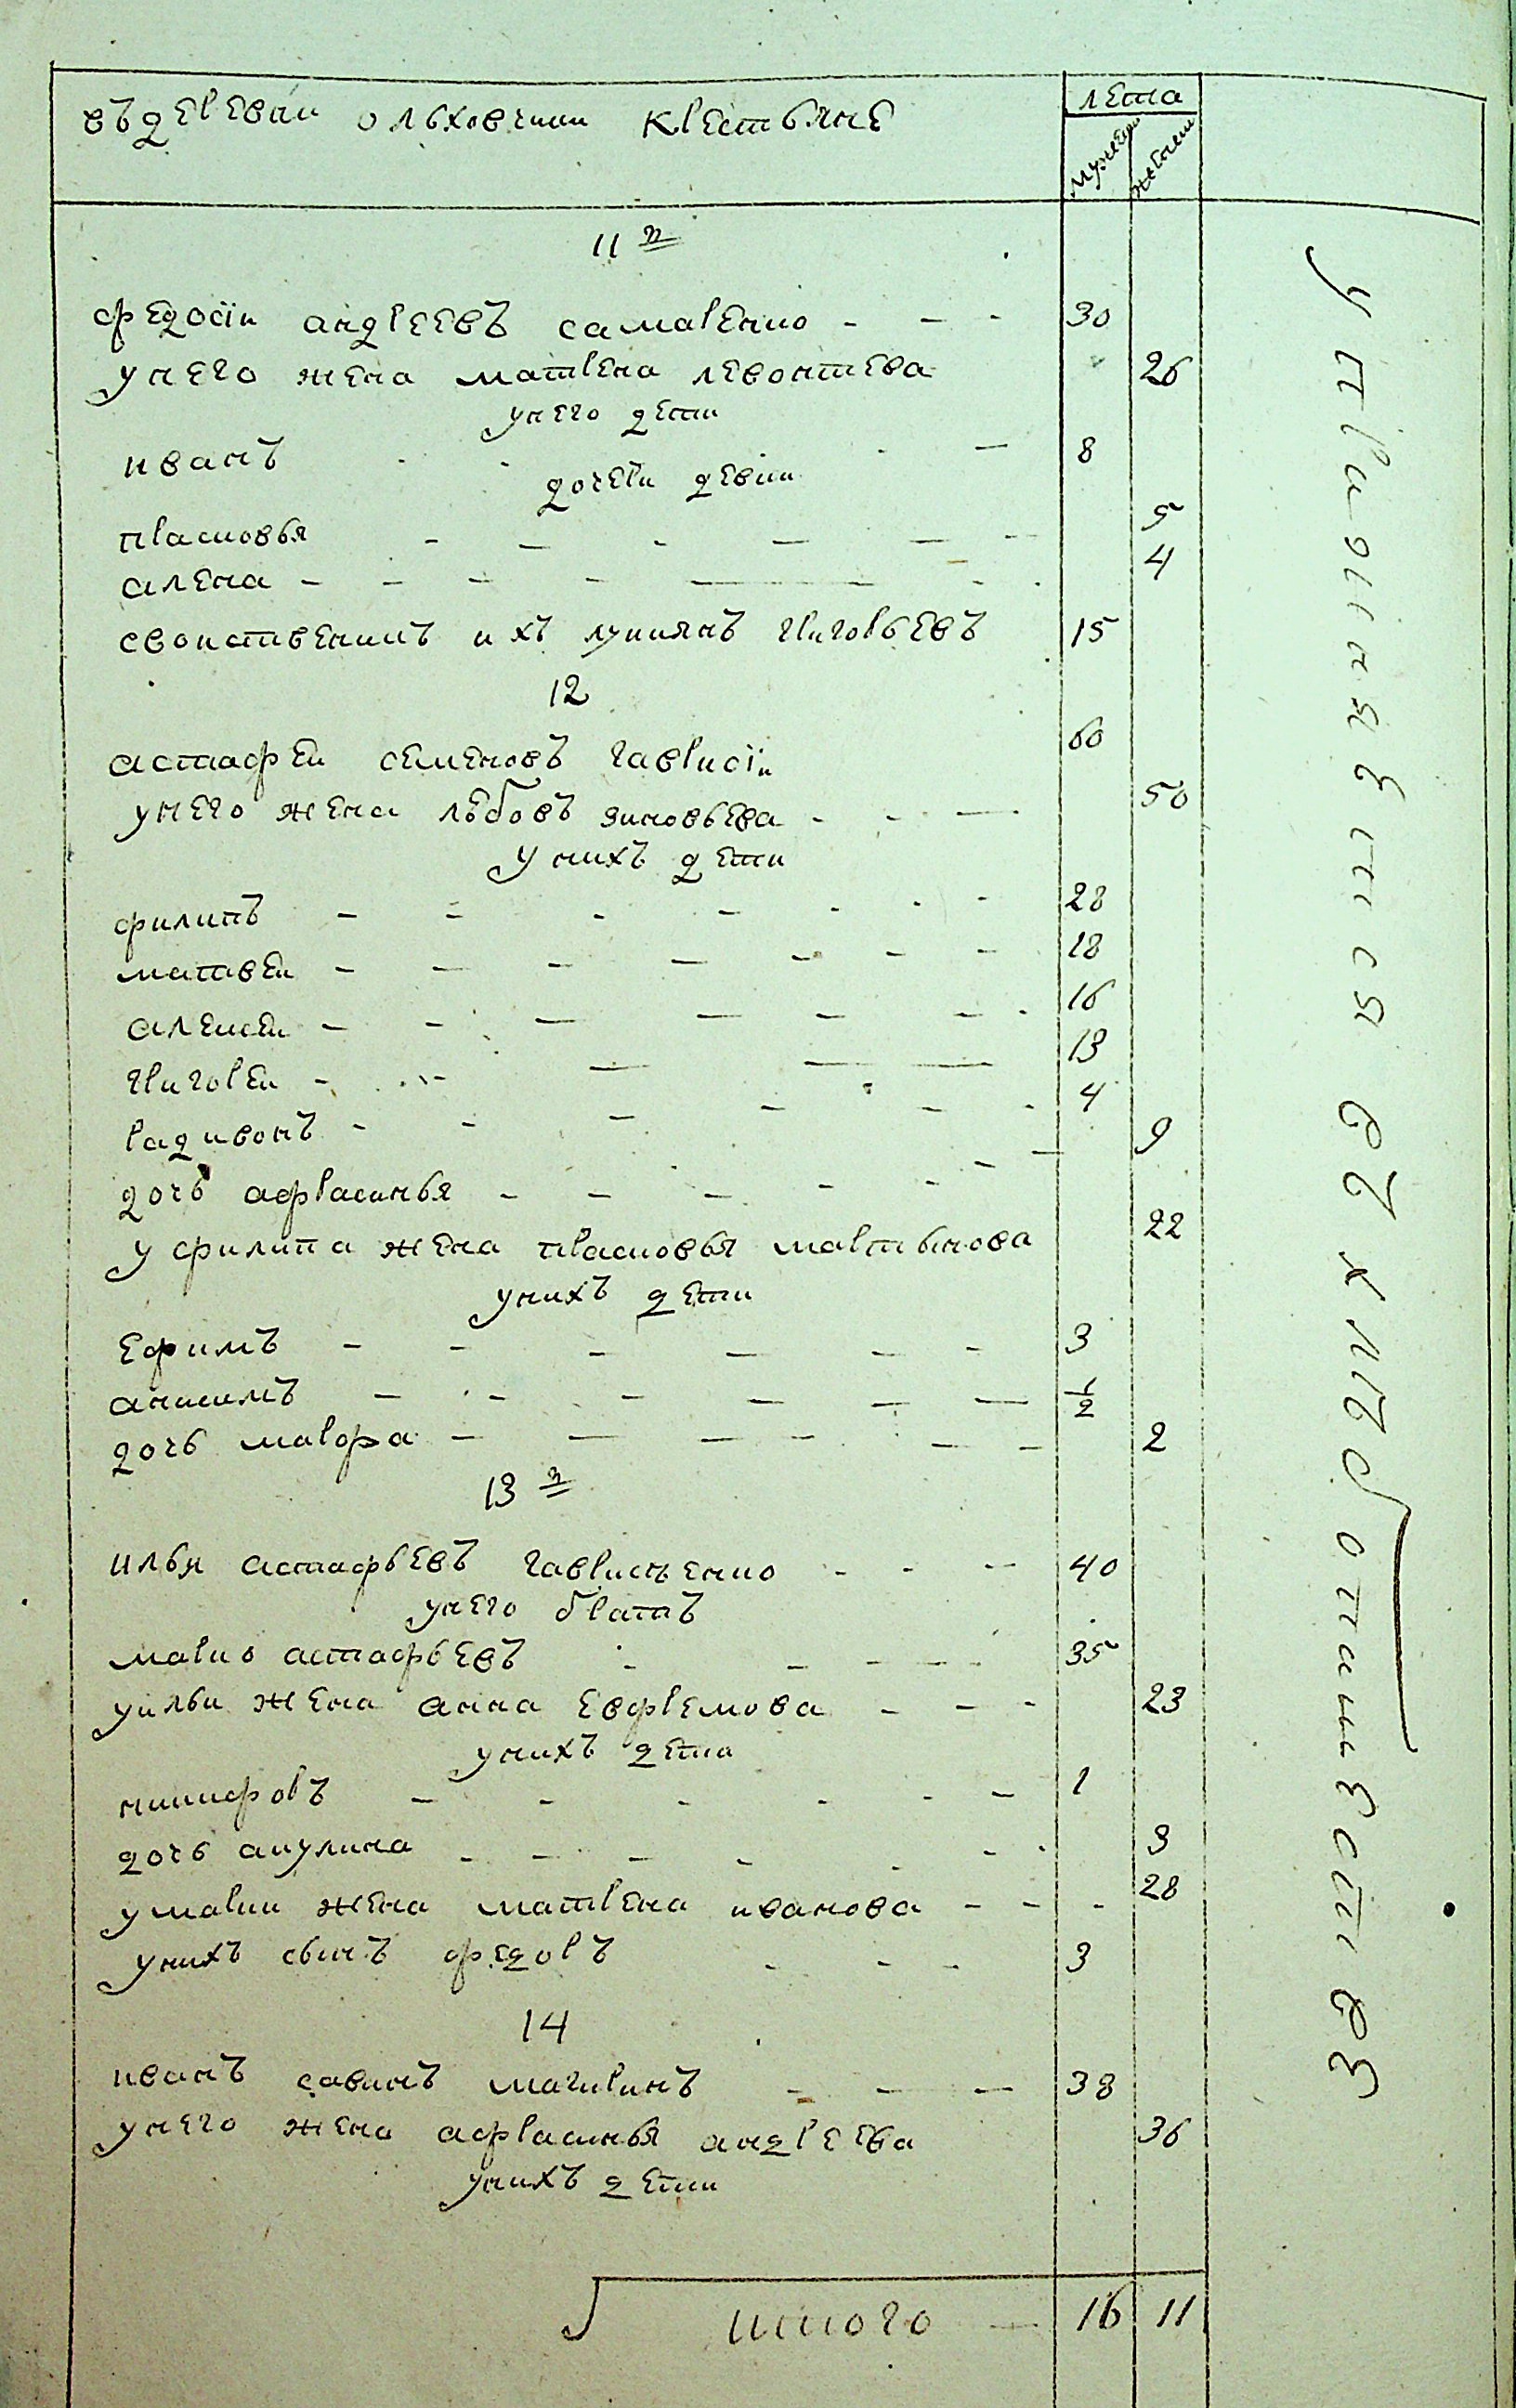 въдеревни ольховчики крестьяне
лета
мужеска
женска
11й
федосiи андреевъ самаренко 30
унего жена матрена левонтева 26
унего дети
иванъ 8
дочери девки
прасковья 5
алена 4
свойственикъ ихъ лукиянъ григорьевъ 15
12
астафеи семеновъ гаврисiи 60
унего жена любовъ зиновьева 50
у нихъ дети
филипъ 28
матвеи 18
алексеи 16
григореи 13
радивонъ 4
дочь афрасинья 9
у филипа жена прасковья мартынова 22
унихъ дети
ефимъ 3
анисимъ 1/2
дочь марфа 2
13й
илья астафьевъ гаврисъенко 40
унего братъ
марко астафьевъ 35
уильи жена анна евфремова 23
унихъ дети
никифоръ 1
дочь акулина 3
умарки жена матрена иванова 28
унихъ сынъ федоръ 3
14
иванъ савинъ магиринъ 38
унего жена афрасинья андреева 36
унихъ дети
итого 16 11